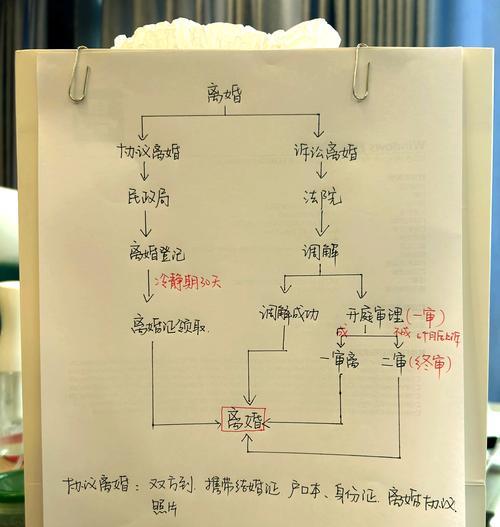 离婚
协议离婚 诉讼离婚
民政局 法院
离婚登记 调解
冷静期30天
离婚证领取 调解成功 开庭审理(一审)
成 不成
一审离 二审(终审)
离婚
协议离婚：双方到、携带结婚证、户口本、身份证、离婚协议、
照片